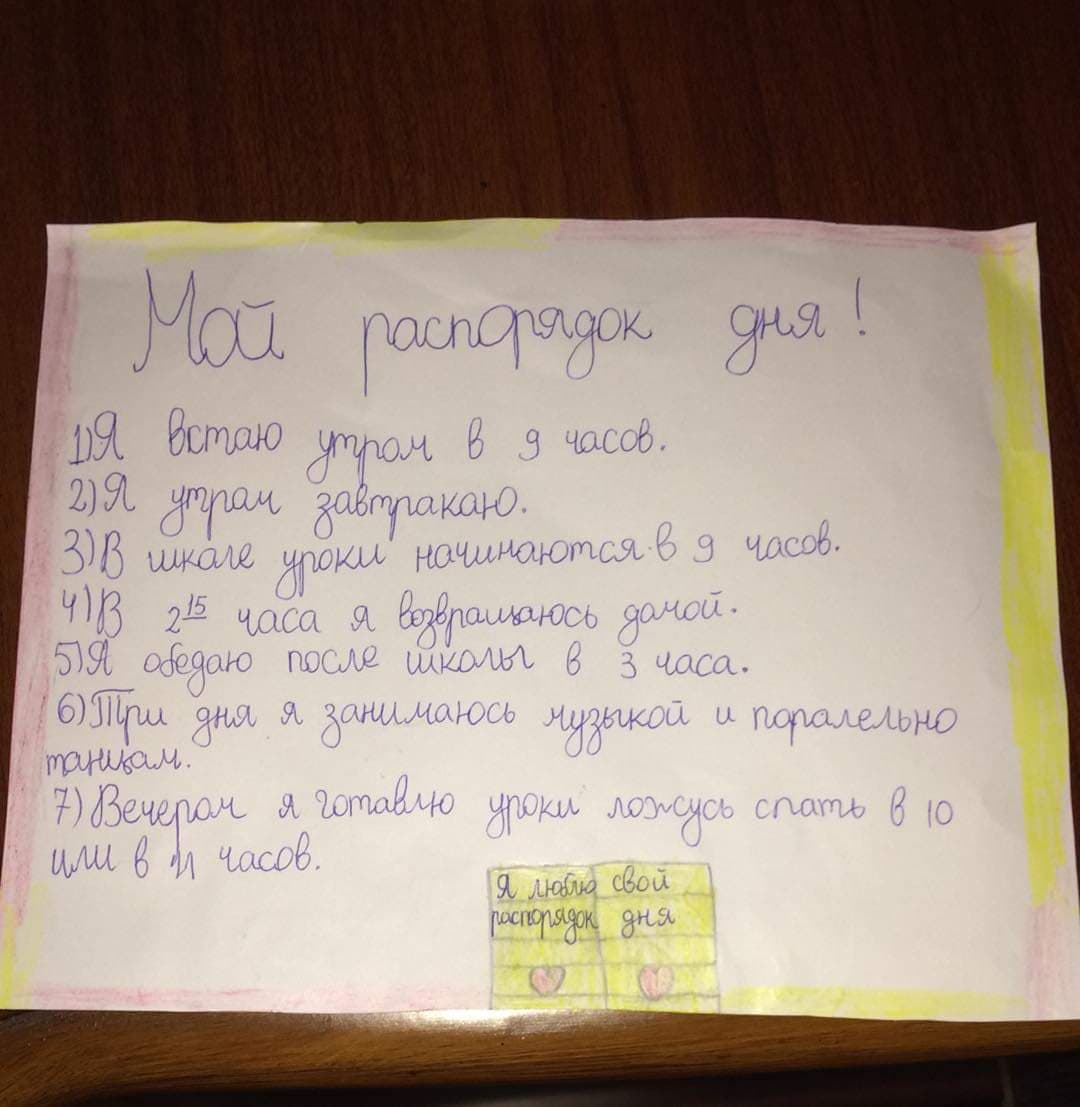 Мой распорядок дня!
1)Я встаю утром в 9 часов.
2)Я утром завтракаю.
3)В школе уроки начинаются в 9 часов.
4)В 2 15 часа я возвращаюсь домой.
5)Я обедаю после школы в 3 часа.
6)Три дня я занимаюсь музыкой и поралельно
танцам.
7)Вечером я готавлю уроки ложусь спать в 10
или в 11 часов.
Я люблю свой
распорядок дня